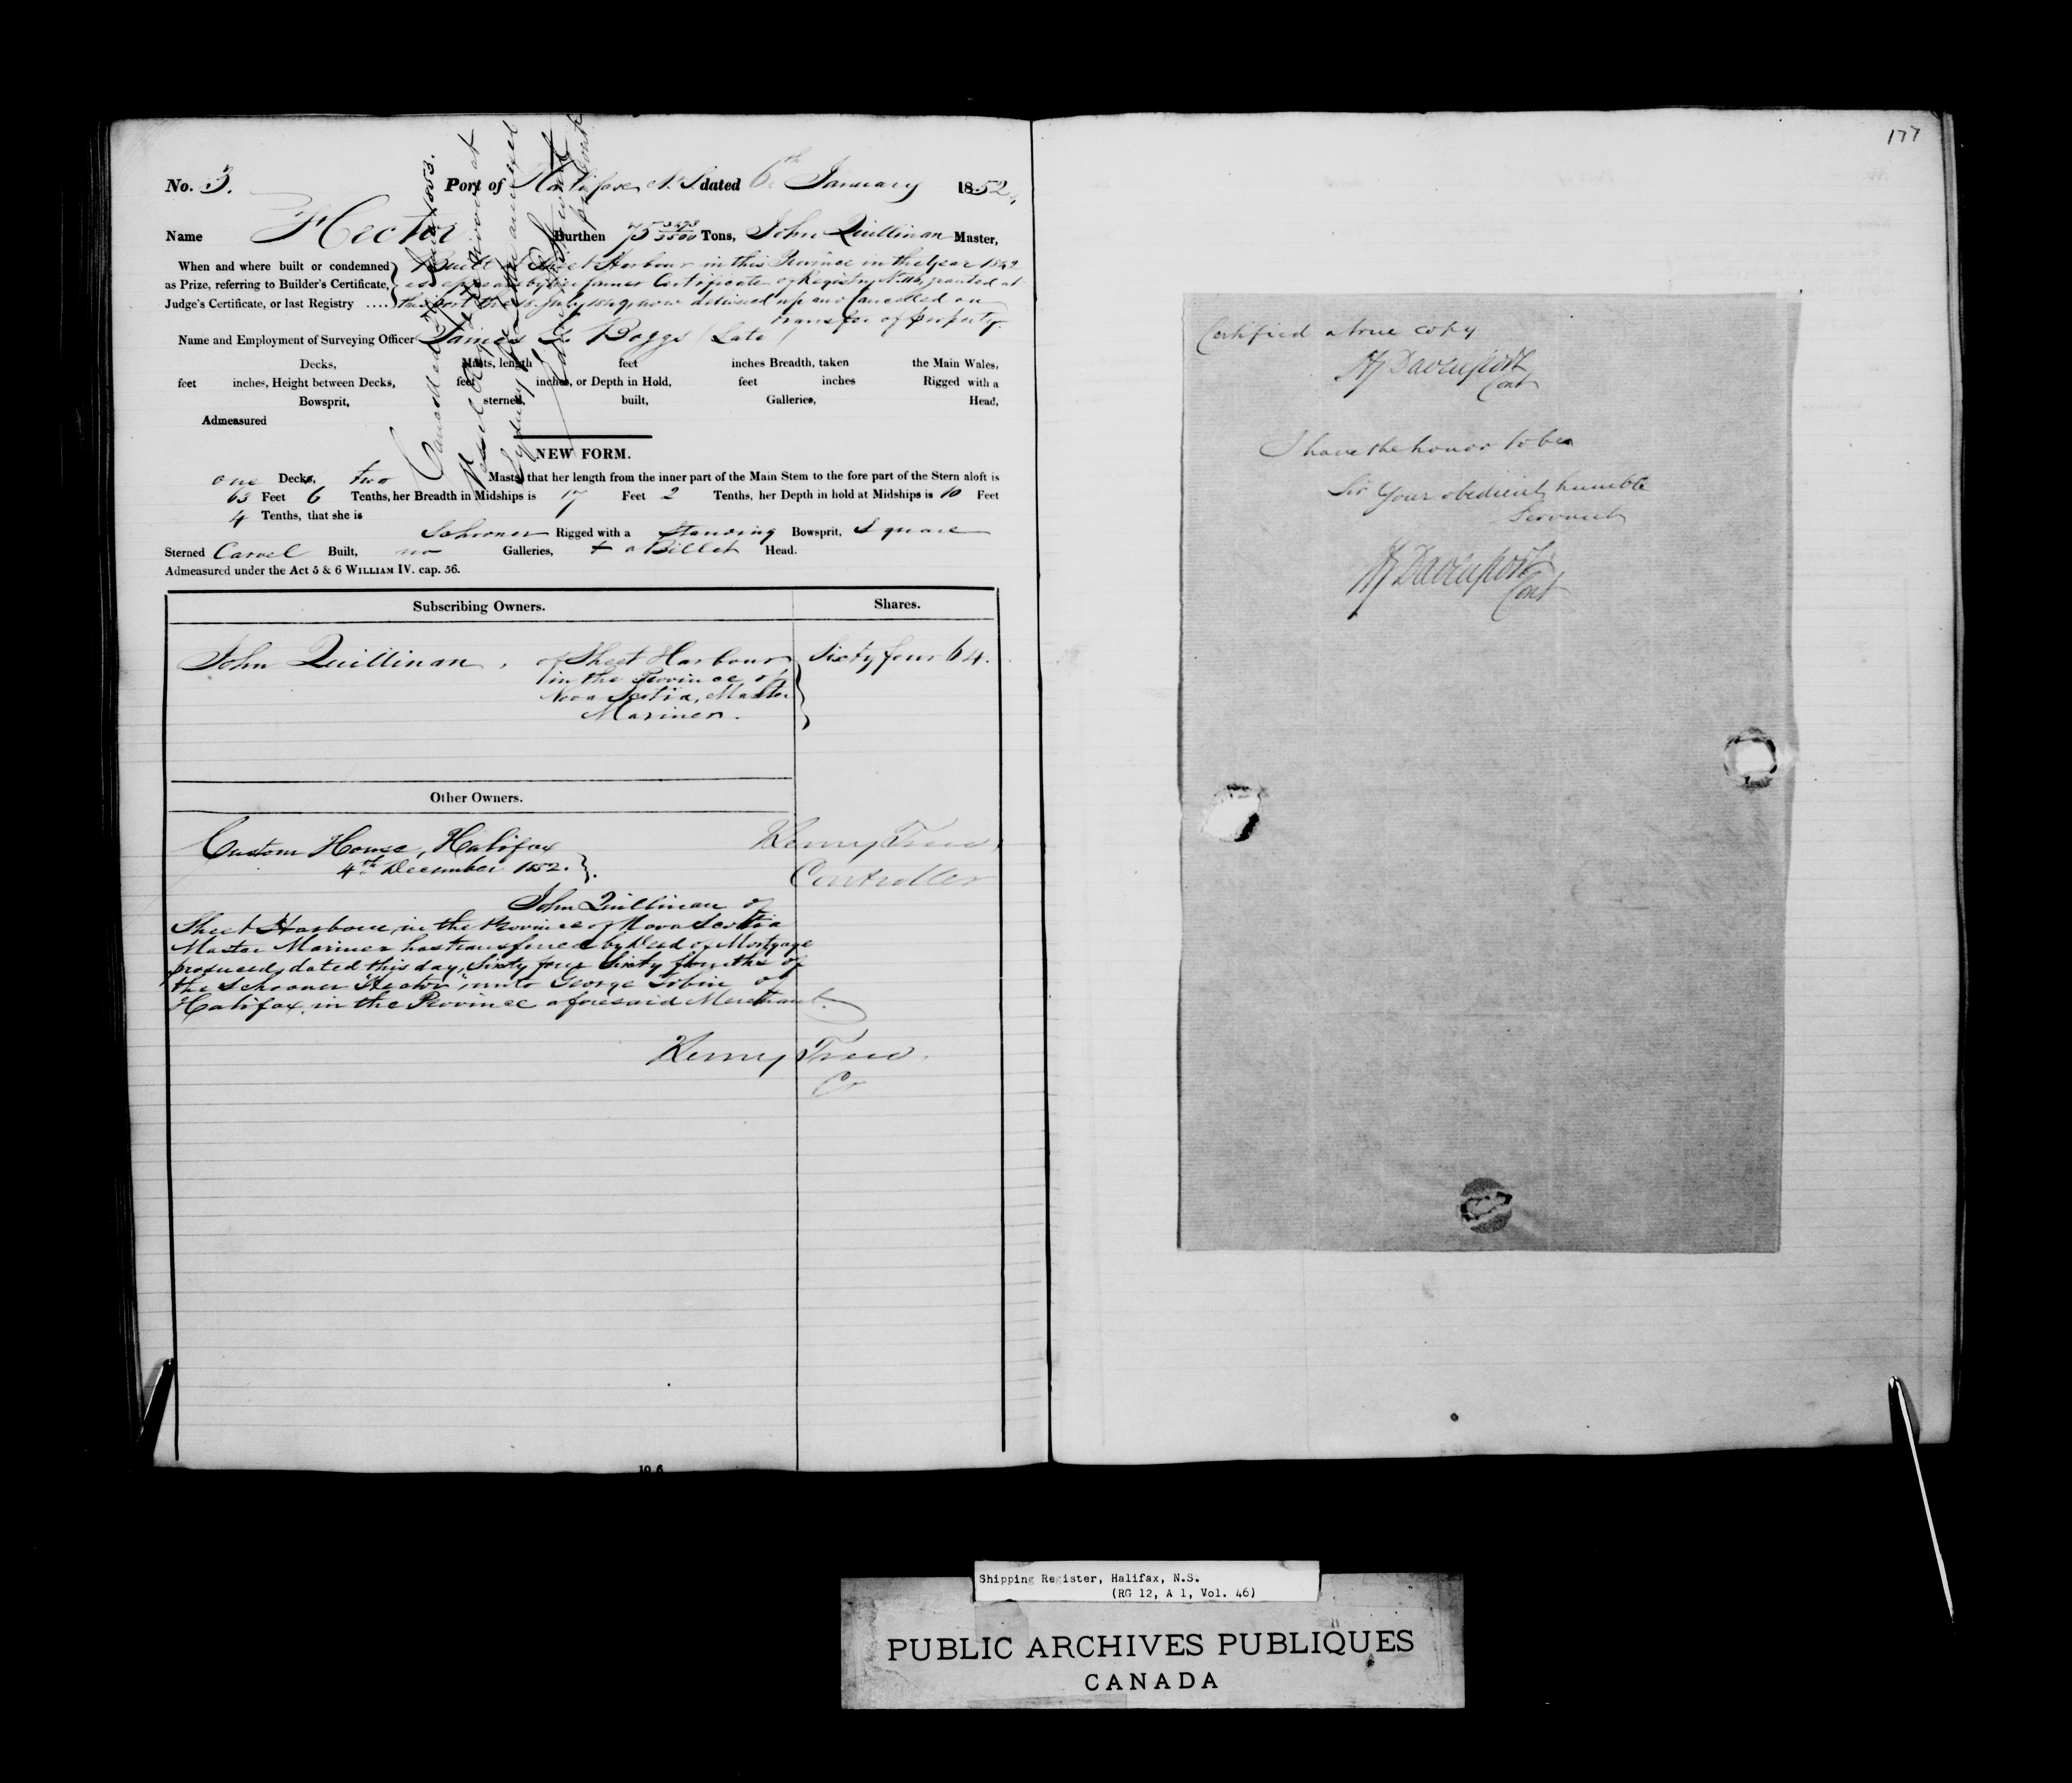 No. 3. Port of Halifax N.S. dated 6th January 1852
Name Hector Burthen 75 3493/3500 Tons, John Quillinan Master,
When and where built or condemned as Prize, referring to Builder's Certificate, Judge's Certificate, or last Registry ....
Built at Sheet Harbour in this Province in the Year 1842
as appears by her former Certificate of Registry granted at
this port the 18 July 1849, now delivered up and Cancelled on
transfer of property.
Name and Employment of Surveying Officer James G. Boggs Late
Decks, Masts, length feet inches Breadth, taken the Main Wales,
feet inches, Height between Decks, feet inches, or Depth in Hold, feet inches Rigged with a
Bowsprit, sterned, built, Galleries, Head,
Admeasured
NEW FORM.
one Decks, two Masts, that her length from the inner part of the Main Stem to the fore part of the Stern aloft is
63 Feet 6 Tenths, her Breadth in Midships is 17 Feet 2 Tenths, her Depth in hold at Midships is 10 Feet
4 Tenths, that she is
Schooner Rigged with a Standing Bowsprit, Square
Sterned Carvel Built, no Galleries, & a Billet Head.
Admeasured under the Act 5 & 6 WILLIAM IV. cap. 56.
Subscribing Owners. Shares.
John Quillinan, of Sheet Harbour Sixty four 64.
in the Province of
Nova Scotia, Master
Mariner.
Other Owners.
Custom House, Halifax
4th December 1852.
Henry Trew
Controller
John Quillinan of
Sheet Harbour in the Province of Nova Scotia
Master Mariner has transferred by Deed of Mortgage
produced, dated this day, Sixty four Sixty fourths of
the Schooner "Hector", unto George Tobin of
Halifax, in the Province aforesaid Merchant.
Henry Trew.
Cr
10 6
177
Certified a true copy
Davenport
Cont
I have the honor to be
Sir Your obedient humble
Servant
Davenport
Cont
Shipping Register, Halifax, N.S.
(RG 12, A 1, Vol. 46)
PUBLIC ARCHIVES PUBLIQUES
CANADA